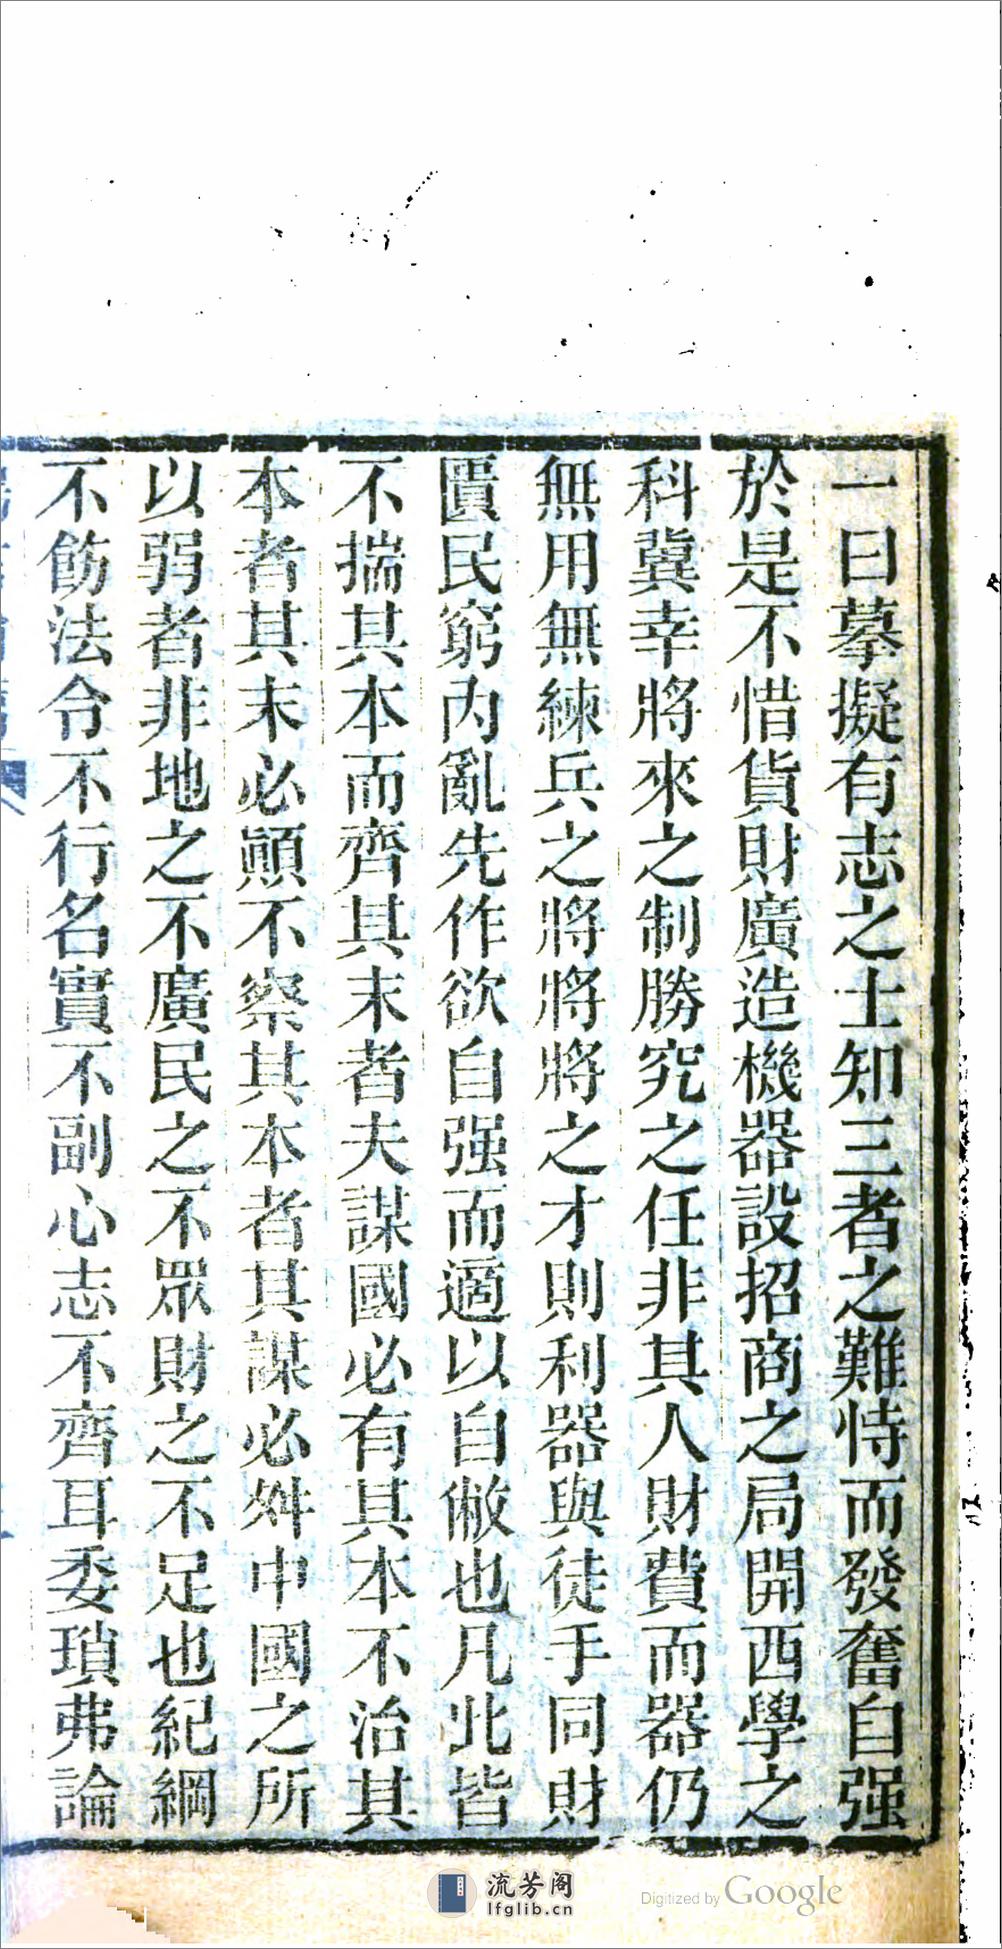 一曰摹擬有志之士知三者之難恃而發奮自强
於是不惜貨財廣造機器設招商之局開西學之
科冀幸將來之制勝究之任非其人財費而器仍
無用無練兵之將將將之才則利器與徒手同財
匱民窮内亂先作欲自强而適以自敝也凡此皆
不揣其本而齊其末者夫謀國必有其本不治其
本者其末必顚不察其本者其謀必舛中國之所
以弱者非地之不廣民之不眾財之不足也紀綱
不飭法令不行名實不副心志不齊耳委瑣弗論
流芳阁
lfglib.cn
Digitized by Google